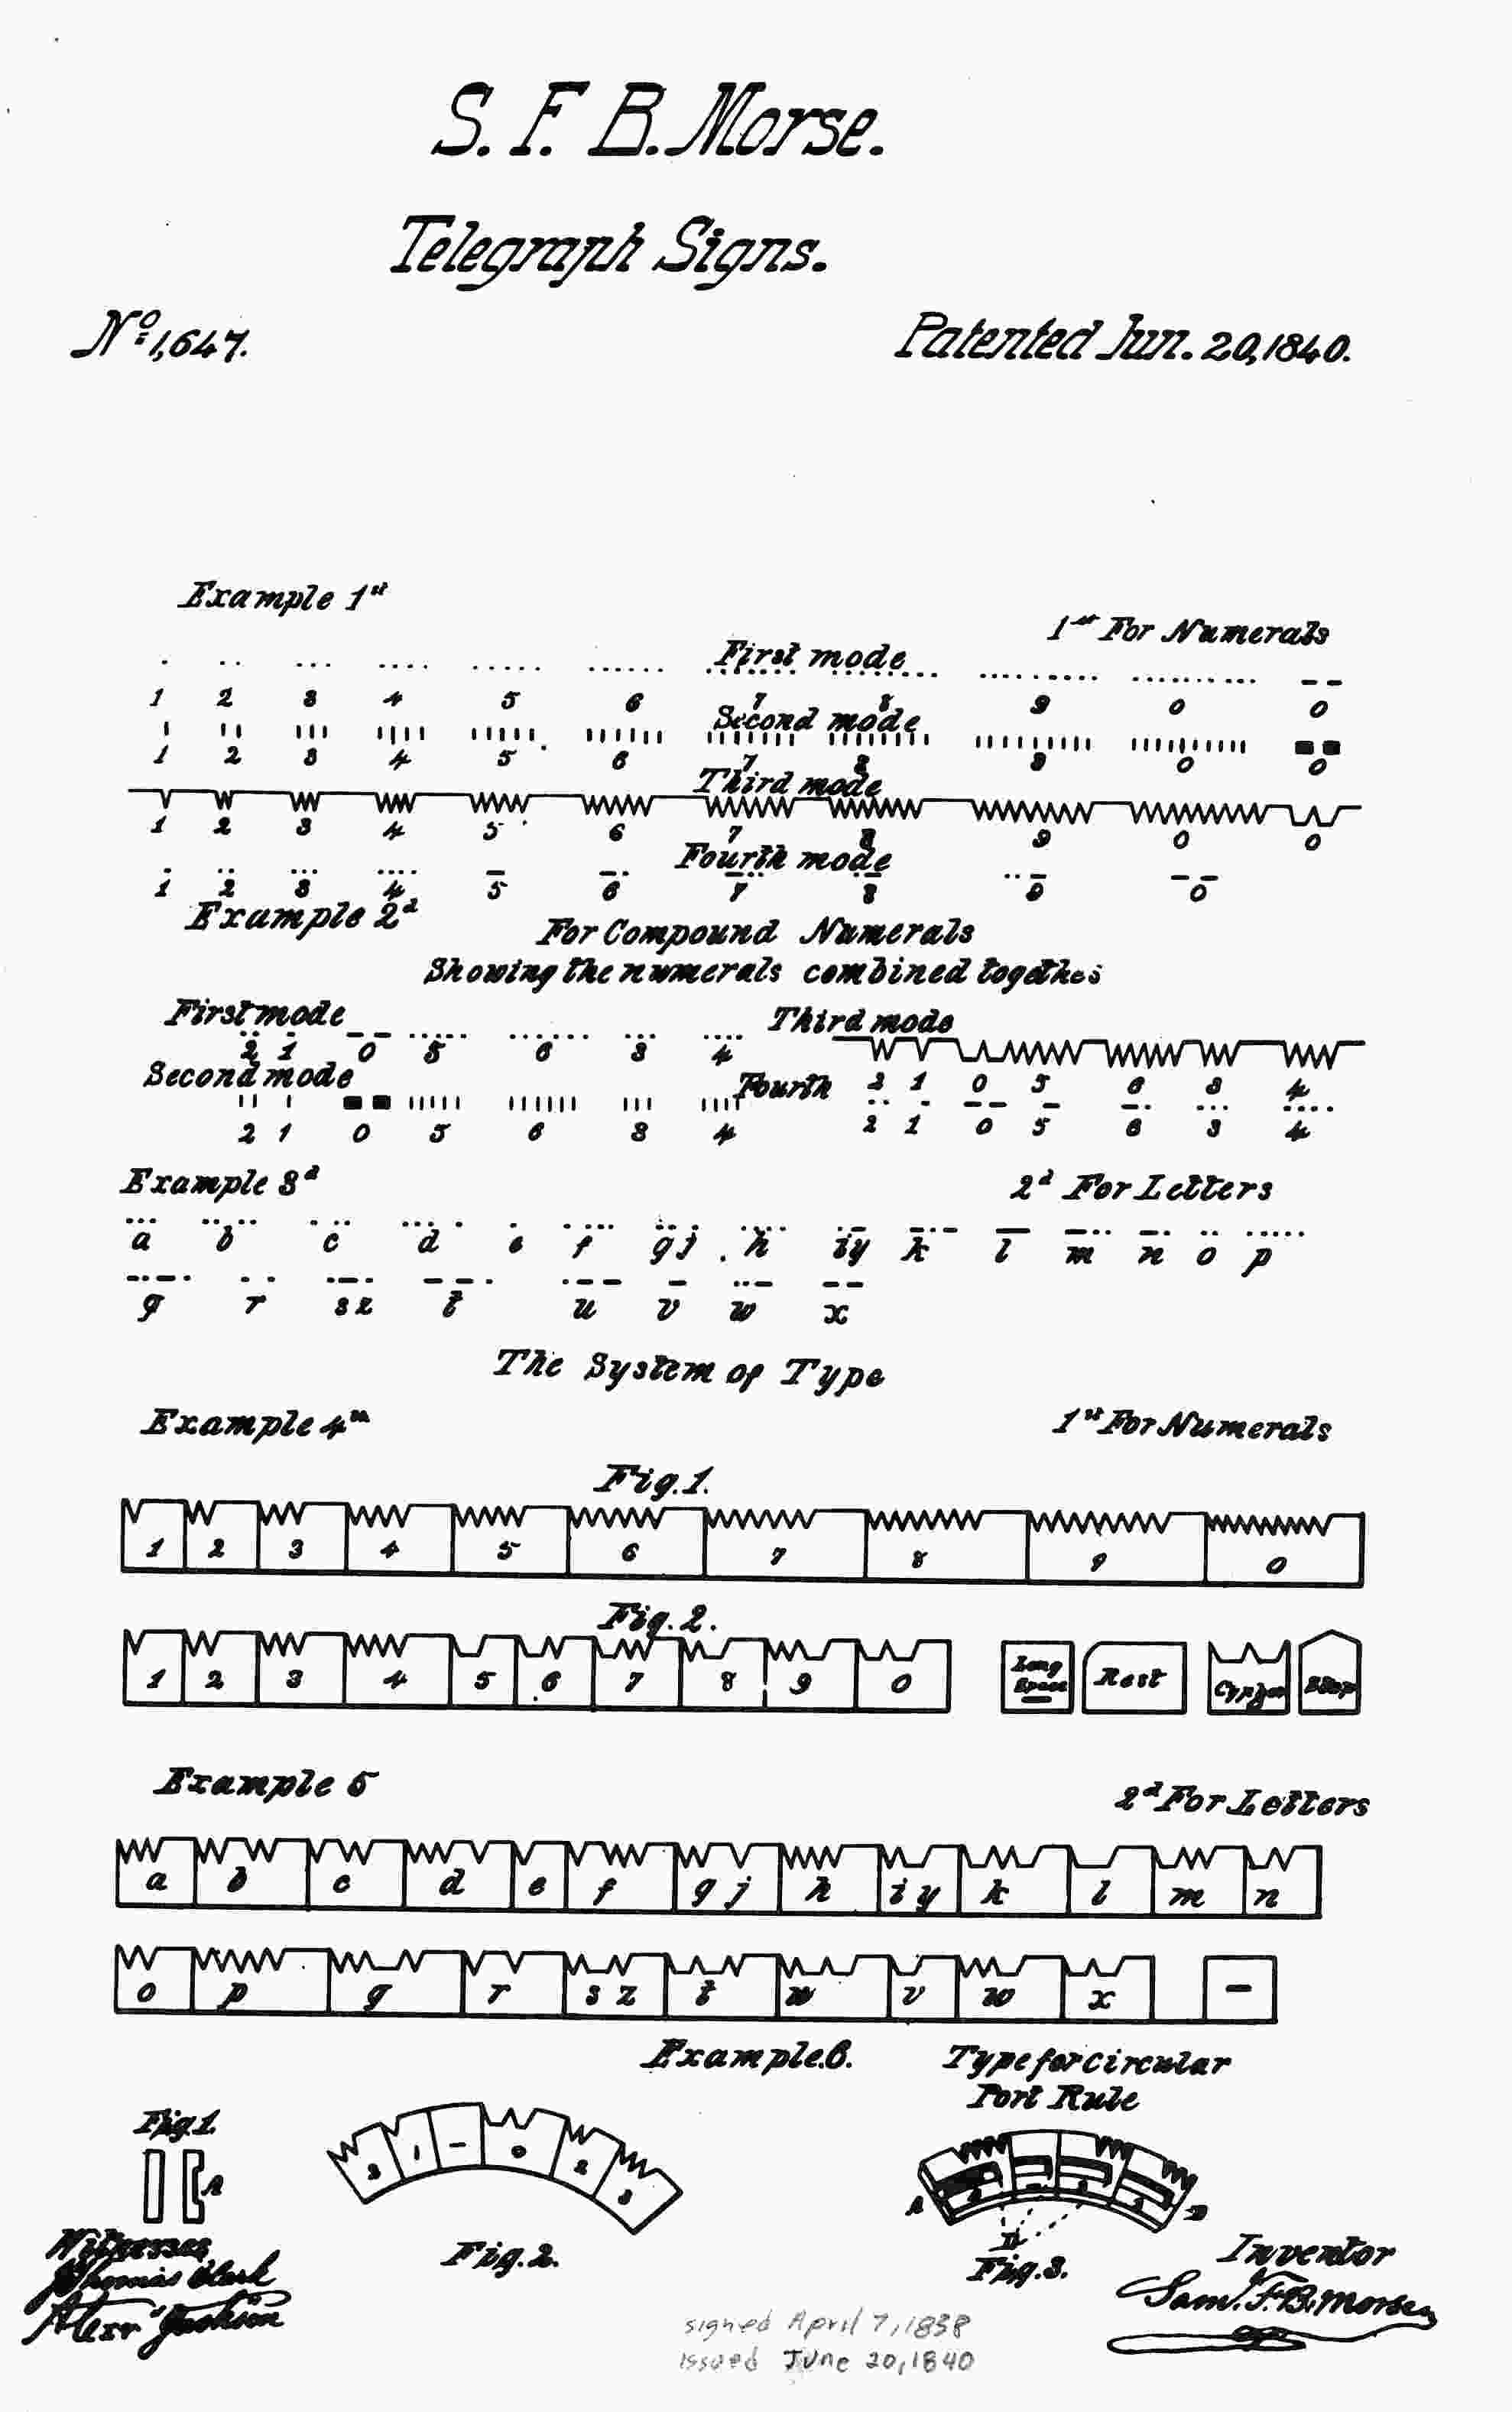 S. F. B. Morse.
Telegraph Signs.
Nº 1,647. Patented Jun. 20, 1840.
Example 1st
1st For Numerals
First mode
1 2 3 4 5 6 7 8 9 0 0
Second mode
1 2 3 4 5 6 7 8 9 0 0
Third mode
1 2 3 4 5 6 7 8 9 0 0
Fourth mode
1 2 3 4 5 6 7 8 9 0
Example 2d
For Compound Numerals
Showing the numerals combined together
First mode
2 1 0 5 6 3 4
Second mode
2 1 0 5 6 3 4
Third mode
2 1 0 5 6 3 4
Fourth
2 1 0 5 6 3 4
Example 3d
2d For Letters
a b c d e f g j h i y k l m n o p
q r s z t u v w x
The System of Type
Example 4th
1st For Numerals
Fig. 1.
1 2 3 4 5 6 7 8 9 0
Fig. 2.
1 2 3 4 5 6 7 8 9 0 Long Space Rest Cypher Stop
Example 5
2d For Letters
a b c d e f g j h i y k l m n
o p q r s z t u v w x
Example. 6.
Type for circular
Port Rule
Fig. 1.
A
Fig. 2.
A
Fig. 3.
Witnesses
Thomas Clark
Alexr Jackson
Inventor
Sam. F. B. Morse
signed April 7, 1838
issued June 20, 1840